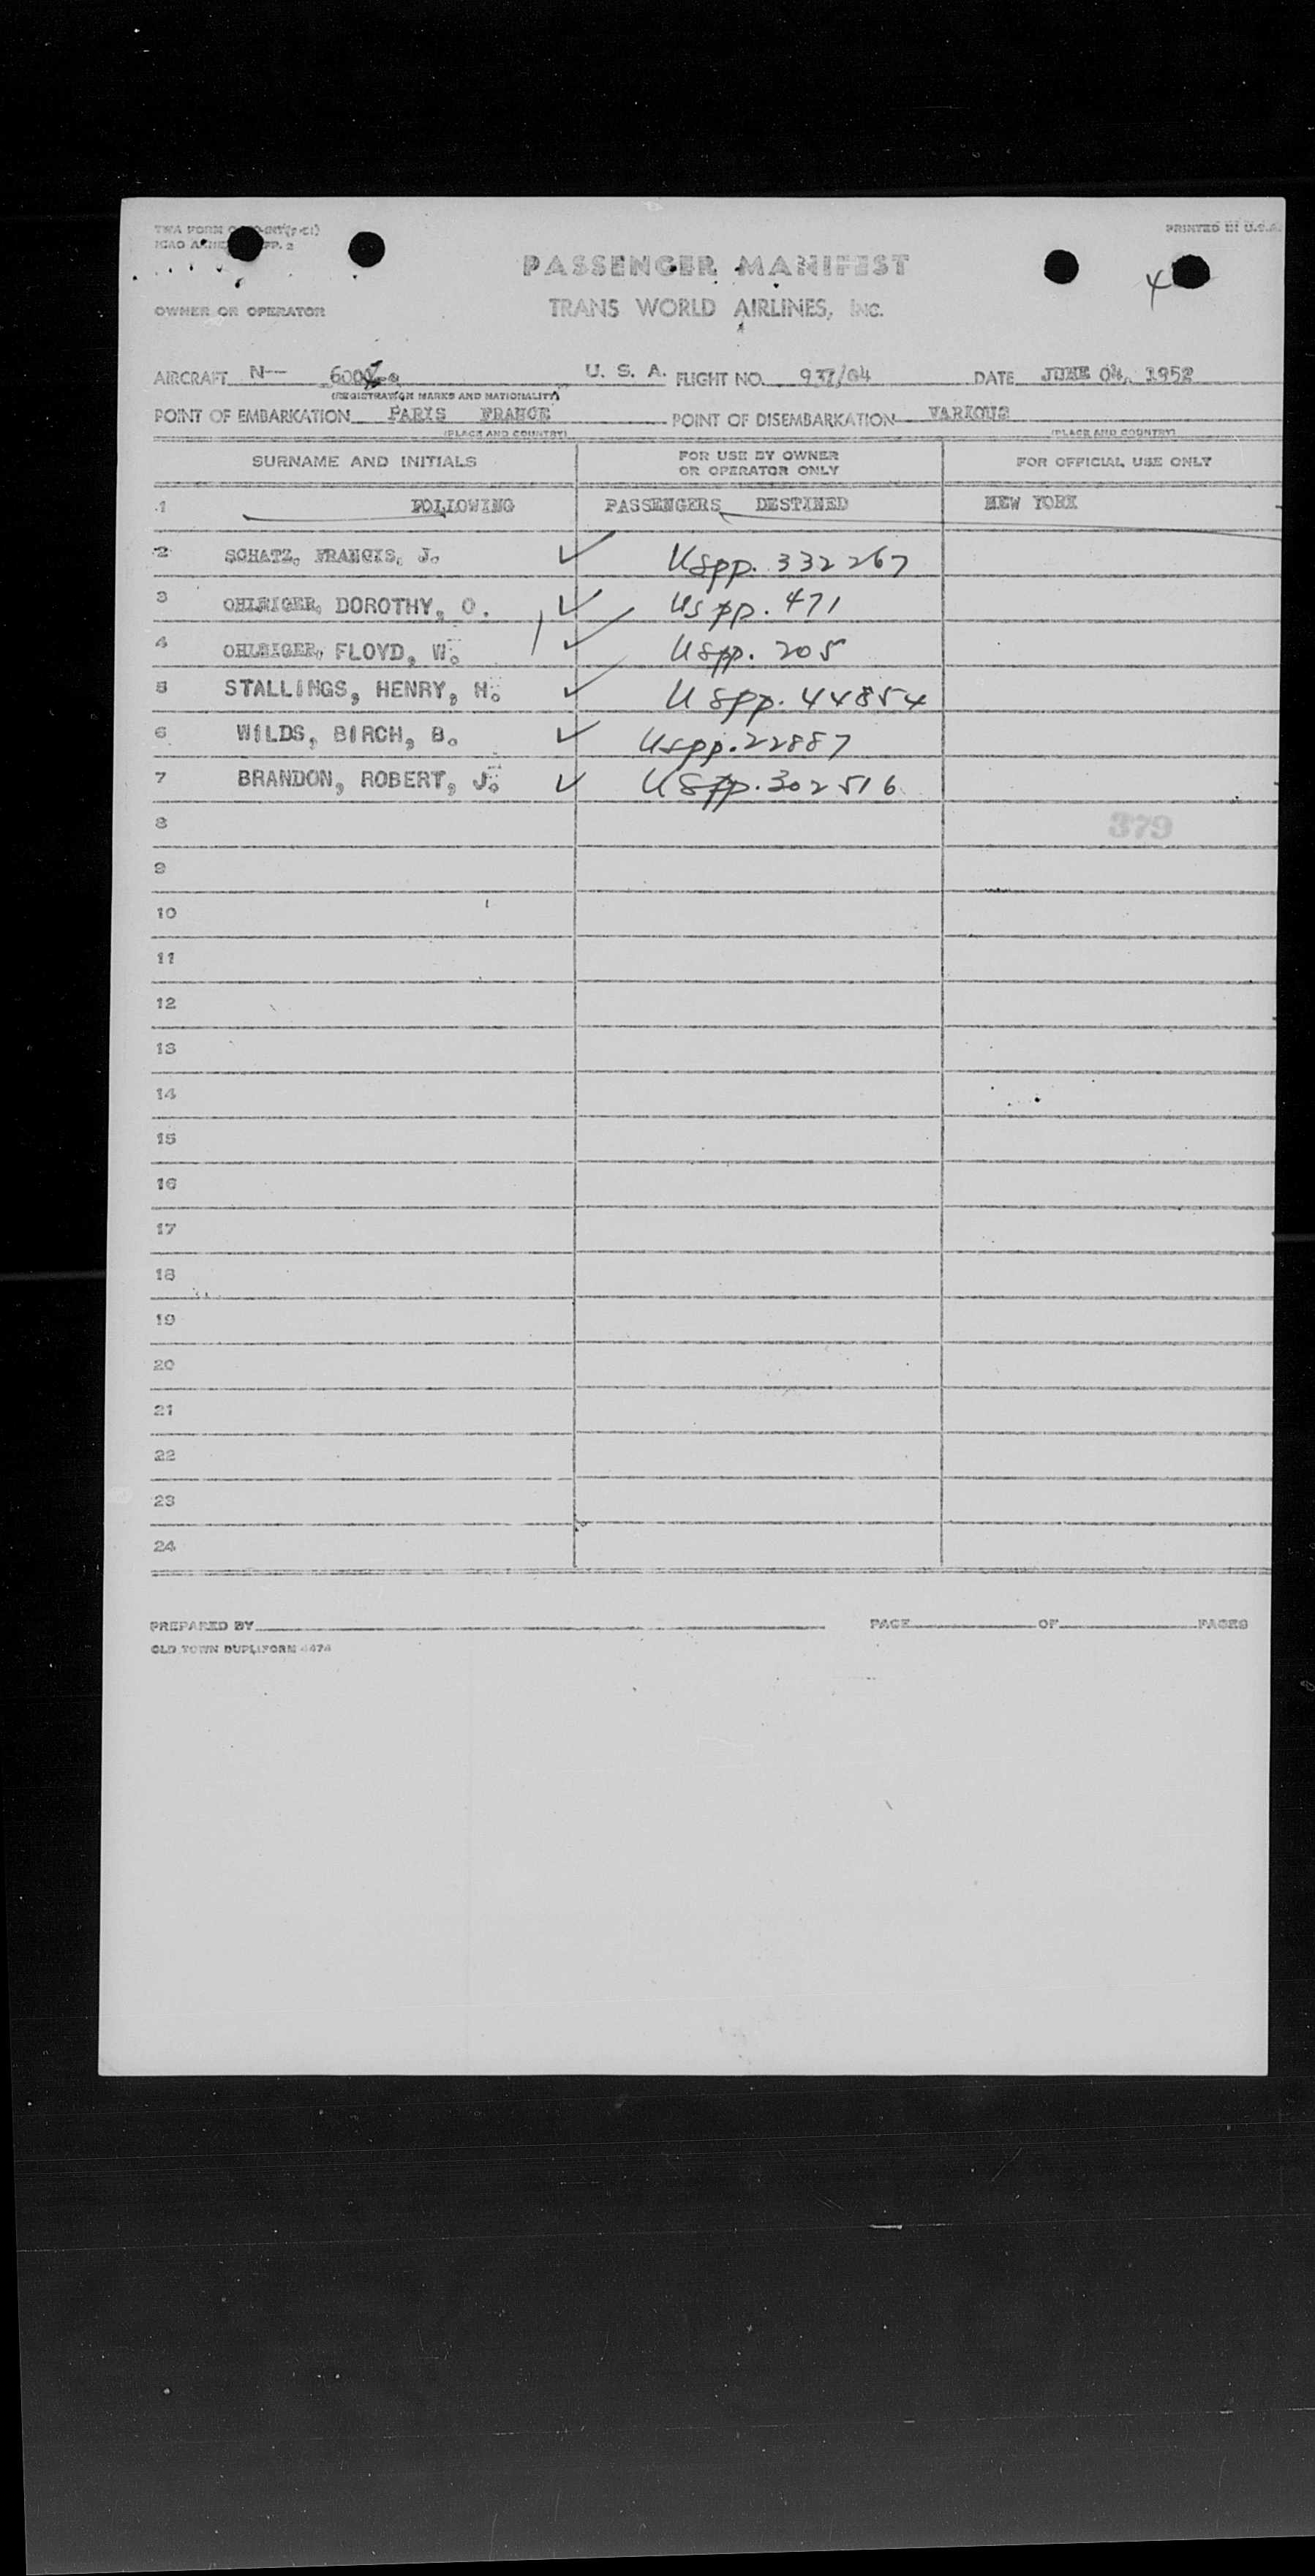 PRINTED IN U.S.A.
ICAO
PASSENGER MANIFEST
4
OWNER OR OPERATOR
TRANS WORLD AIRLINES, INC.
AIRCRAFT N-- U. S. A. FLIGHT NO. 937/04 DATE JUNE 04, 1952
(REGISTRATION MARKS AND NATIONALITY)
POINT OF EMBARKATION PARIS FRANCE POINT OF DISEMBARKATION VARIOUS
(PLACE AND COUNTRY) (PLACE AND COUNTRY)
SURNAME AND INITIALS FOR USE BY OWNER OR OPERATOR ONLY FOR OFFICIAL USE ONLY
1 FOLLOWING PASSENGERS DESTINED NEW YORK
2 SCHATZ, FRANCIS, J. ✓ USpp. 332267
3 DOROTHY, O. ✓ USpp. 471
4 FLOYD, W. ✓ USpp. 205
5 STALLINGS, HENRY, H. ✓ USpp. 44854
6 WILDS, BIRCH, B. ✓ USpp. 22887
7 BRANDON, ROBERT, J. ✓ USpp. 302516
8 379
9
10
11
12
13
14
15
16
17
18
19
20
21
22
23
24
PREPARED BY PAGE OF PAGES
OLD TOWN DUPLIFORM